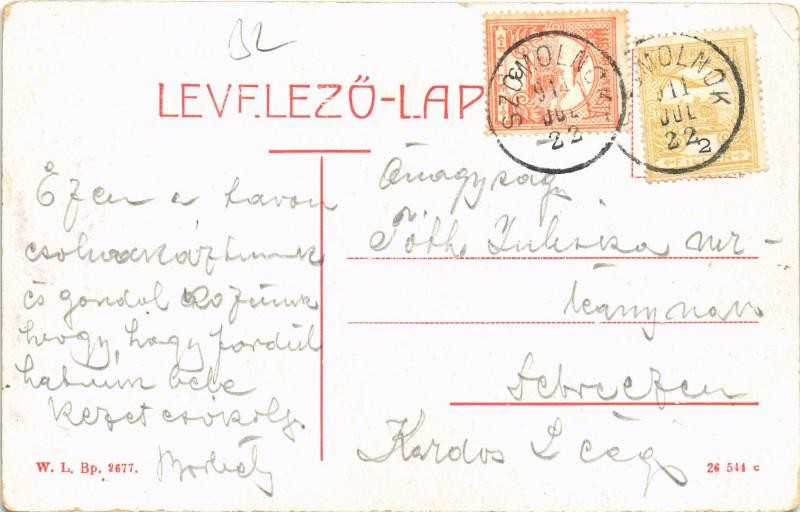 LEVELEZŐ-LAP
SZOMOLNOK
911
JUL
22
SZOMOLNOK
911
JUL
22
2
FILLÉR
Ezen a tavon
csolnakáztunk
és gondolkoztunk
hogy, hogy fordul
hatunk bele
Kezet csókolj.
Borbély
Őnagysága
Tóth Juliska úr-
leánynak
Debreczen
Kardos L cég
W. L. Bp. 2677.
26 544 c